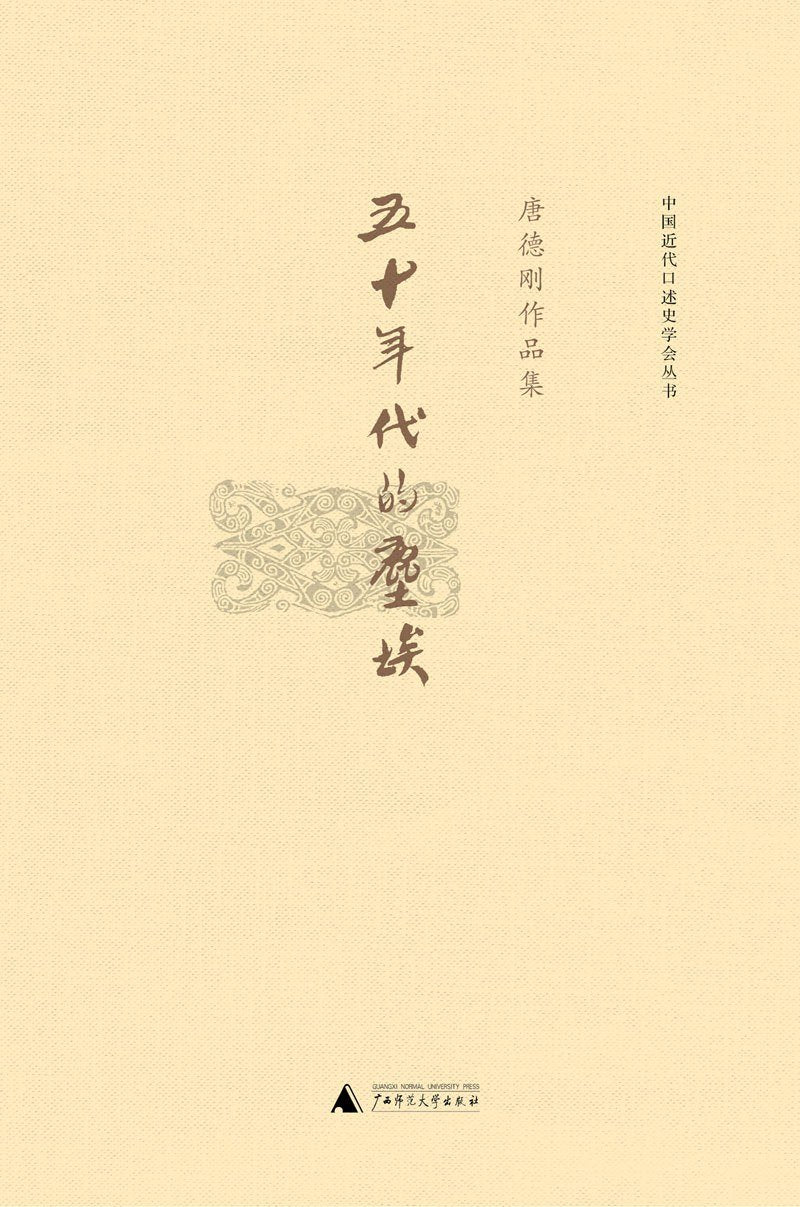 中国近代口述史学会丛书
唐德刚作品集
五十年代的塵埃
GUANGXI NORMAL UNIVERSITY PRESS
广西师范大学出版社